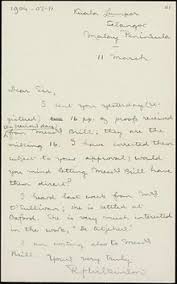 1904-03-11
Kuala Lumpor
Selangor
Malay Peninsula
11 March
Dear Sir,
I sent you yesterday (re-
gistered) 16 pp. of proofs received
from Messrs Brill; they are the
missing 16. I have corrected them
subject to your approval; would
you mind letting Messrs Brill have
them direct?
I heard last week from Mrs
O'Sullivan; she is settled at
Oxford. She is very much interested
in the work,
I am writing also to Messrs
Brill. Yours very truly
R. J. Wilkinson